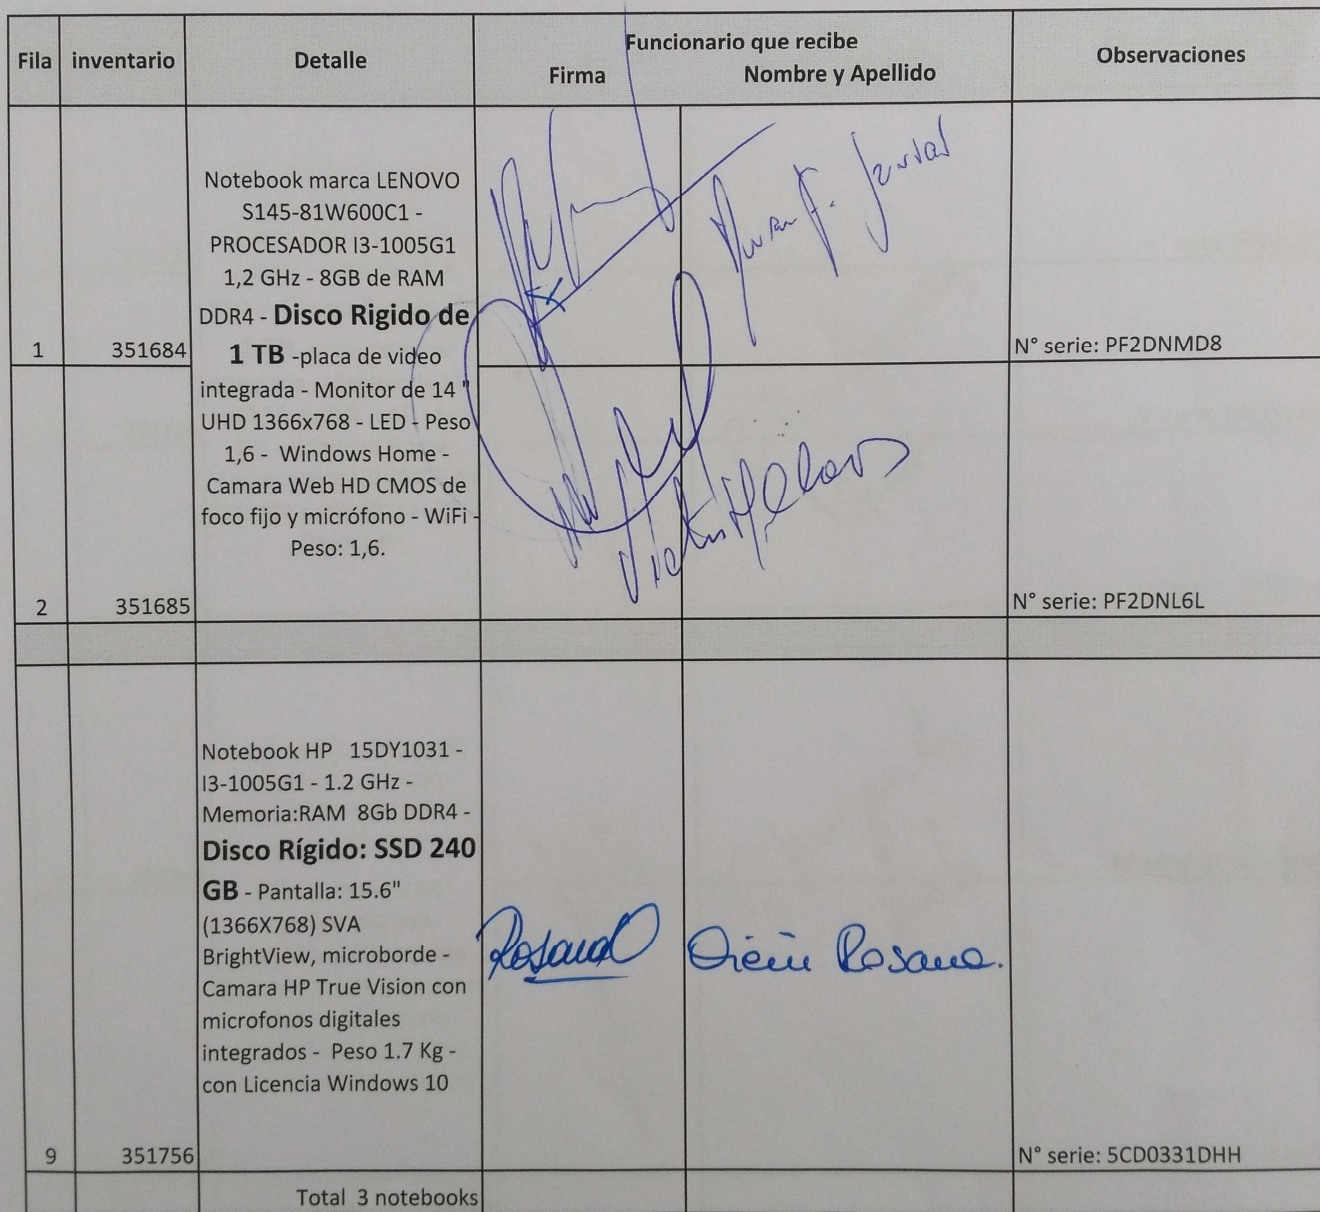 Fila inventario Detalle Funcionario que recibe Observaciones
Firma Nombre y Apellido
Notebook marca LENOVO
S145-81W600C1 -
PROCESADOR I3-1005G1
1,2 GHz - 8GB de RAM
DDR4 - Disco Rigido de
1 TB -placa de video
integrada - Monitor de 14 "
UHD 1366x768 - LED - Peso
1,6 - Windows Home -
Camara Web HD CMOS de
foco fijo y micrófono - WiFi -
Peso: 1,6.
1 351684 N° serie: PF2DNMD8
2 351685 N° serie: PF2DNL6L
Notebook HP 15DY1031 -
I3-1005G1 - 1.2 GHz -
Memoria:RAM 8Gb DDR4 -
Disco Rígido: SSD 240
GB - Pantalla: 15.6"
(1366X768) SVA
BrightView, microborde -
Camara HP True Vision con
microfonos digitales
integrados - Peso 1.7 Kg -
con Licencia Windows 10
Rosana.
9 351756 N° serie: 5CD0331DHH
Total 3 notebooks